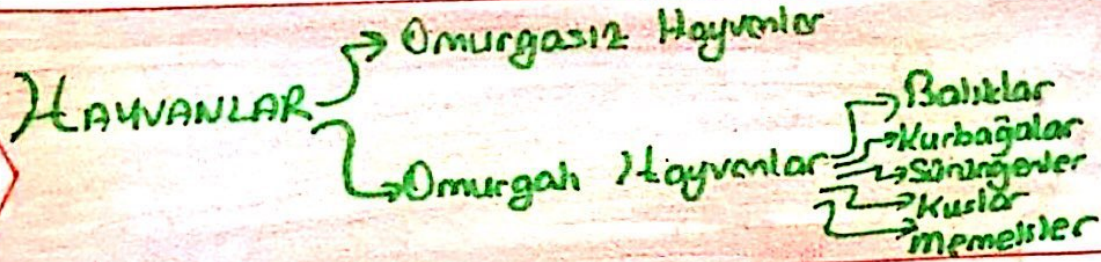 HAYVANLAR
Omurgasız Hayvanlar
Omurgalı Hayvanlar
Balıklar
Kurbağalar
Sürüngenler
Kuşlar
Memeliler